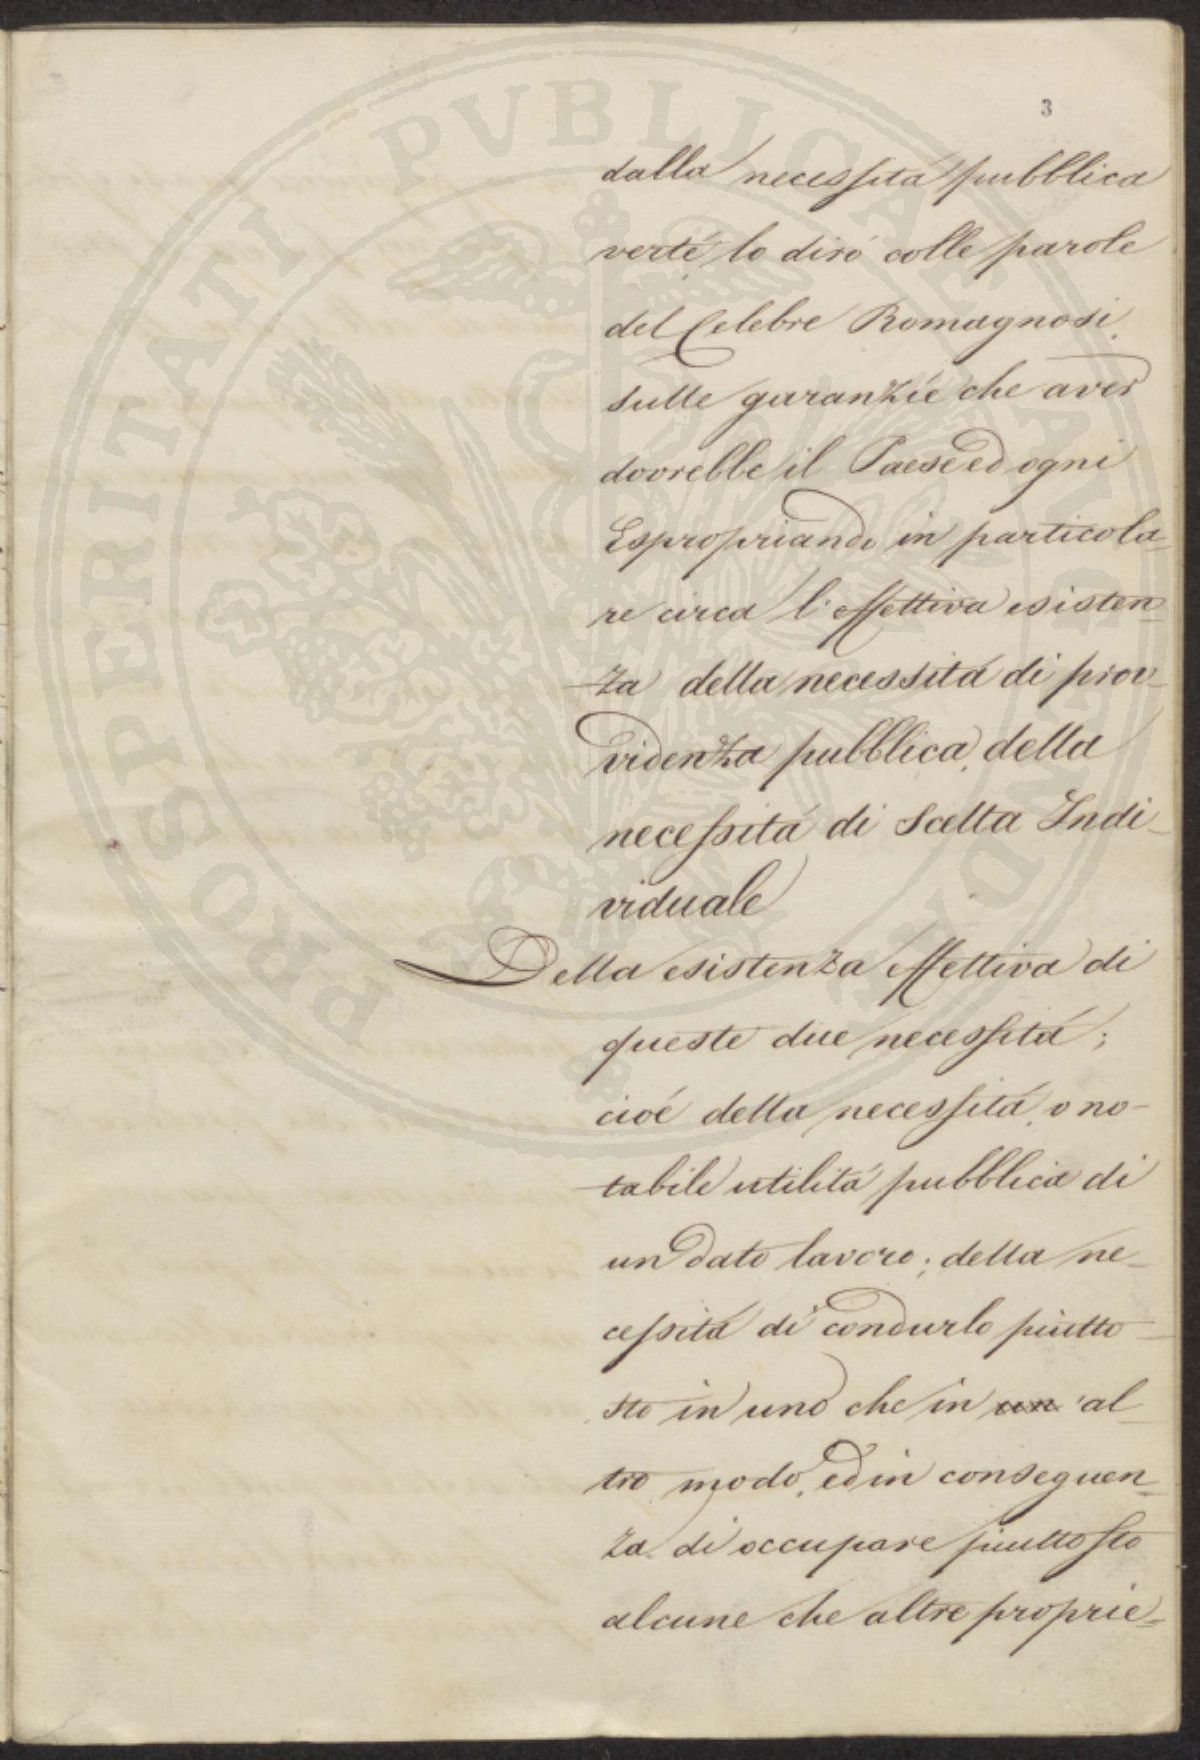 3
dalla necessitá pubblica
verté lo diró colle parole
del Celebre Romagnosi.
sulle garanzie che aver
dovrebbe il Paese ed ogni
Espropriando in particola-
re circa l'effettiva esisten-
za della necessitá di prov-
videnza pubblica, della
necessitá di Scelta Indi-
viduale
Della esistenza effettiva di
queste due necessitá;
cioé della necessitá, o no-
tabile utilitá pubblica di
un dato lavoro; della ne-
cessitá di condurlo piutto-
sto in uno che in un al-
tro modo, ed in conseguen-
za di occupare piuttosto
alcune che altre proprie-
PROSPERITATI PVBLICAE AVGENDAE